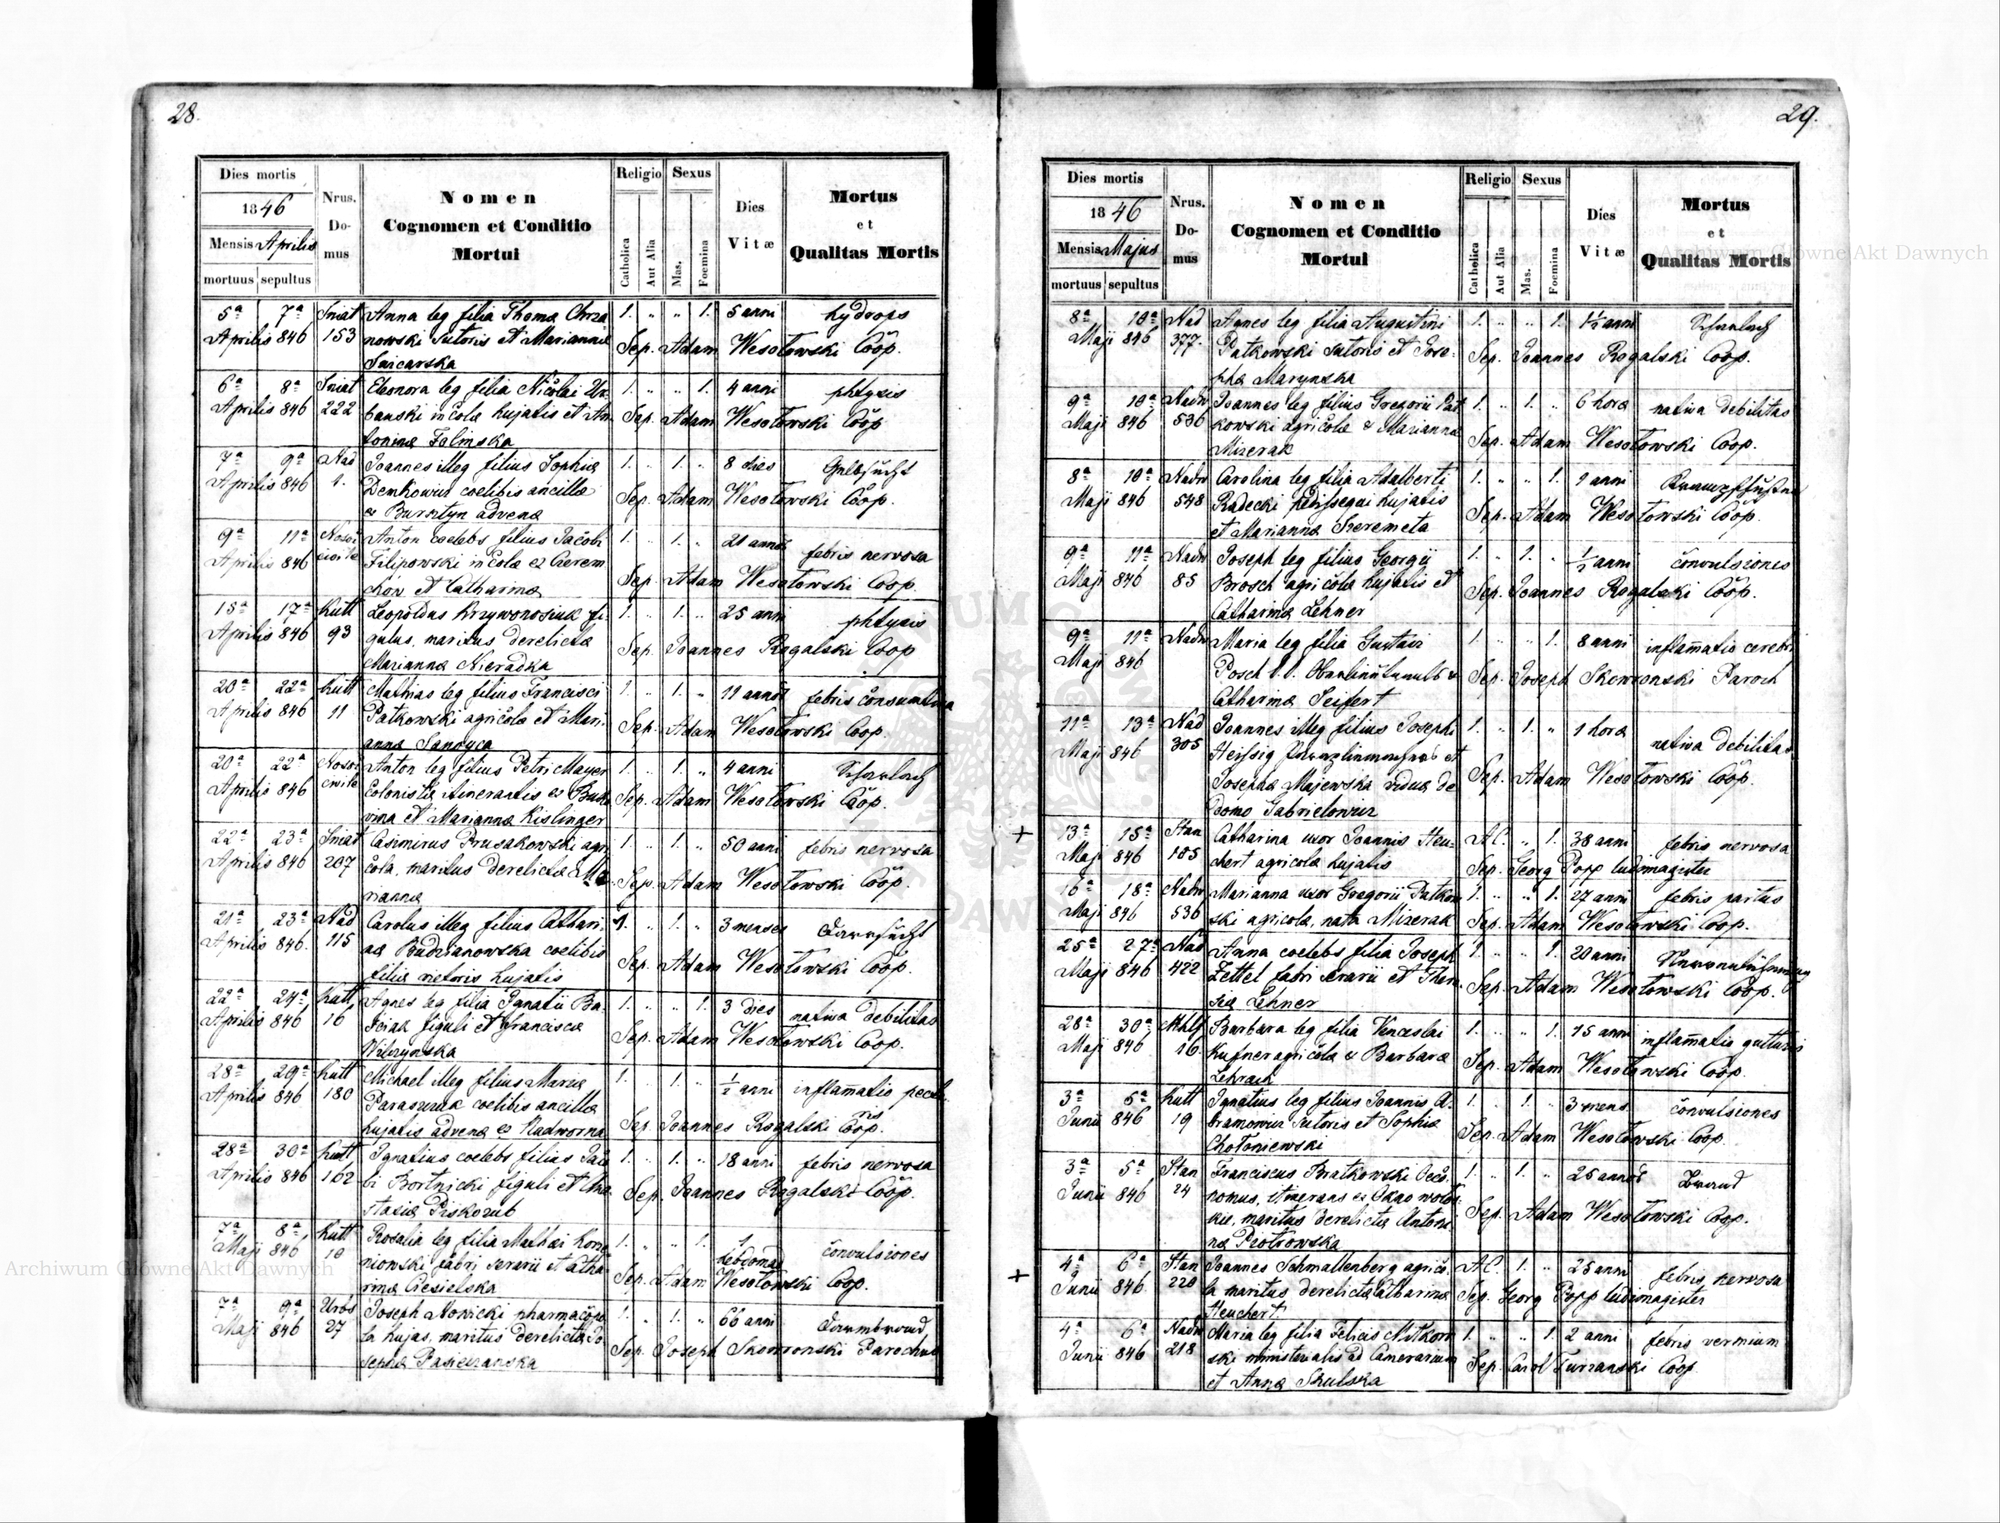 28.
Dies mortis
Nrus.
Do-
mus
Nomen
Cognomen et Conditio
Mortui
Religio
Sexus
Dies
Vitæ
Mortus
et
Qualitas Mortis
1846
Mensis Aprilis
mortuus sepultus
Catholica
Aut Alia
Mas.
Foemina
5ª 7ª Sniat Anna leg filia Thomæ Chrza 1. " " 1. 5 anni hydrops
Aprilis 846 153 nowski sutoris et Mariannæ Sep. Adam Wesołowski Coop.
6ª 8ª Sniat Eleonora leg filia Nicolai Ur 1. " " 1. 4 anni phtysis
Aprilis 846 222 banski incolæ hujatis et An Sep. Adam Wesołowski Coop
toninæ Falinska
7ª 9ª Nad Joannes illeg filius Sophiæ 1. " 1. " 8 dies Gelbsucht
Aprilis 846 1. Demkowius coelibis ancillæ Sep. Adam Wesołowski Coop.
e Bursztyn advenæ
9ª 11ª Anton coelebs filius Jacobi 1. " 1. " 21 annor febris nervosa
Aprilis 846 Filipowski incolæ ex Czerem Sep. Adam Wesołowski Coop.
chów et Catharinæ
15ª 17ª Kutt Leopoldus Krzyworosiuk fi 1. " 1. " 25 anni phtysis
Aprilis 846 93 gulus, maritus derelictæ Sep. Joannes Rogalski Coop
Mariannæ Nieradka
20ª 22ª Kutt Mathias leg filius Francisci 1. " 1. " 11 annor febris consumtiva
Aprilis 846 11 Patkowski agricolæ et Mari- Sep. Adam Wesołowski Coop.
annæ Sanoyca
20ª 22ª Anton leg filius Petri Mayer 1. " 1. " 4 anni Scharlach
Aprilis 846 Colonistæ itinerantis ex Buko Sep. Adam Wesołowski Coop.
vina et Mariannæ Kislinger
22ª 23ª Sniat Casimirus Prusakowski agri 1. " 1. " 50 anni febris nervosa
Aprilis 846 207 cola, maritus derelictæ Ma Sep. Adam Wesołowski Coop.
riannæ
21ª 23ª Nad Carolus illeg filius Cathari 1. " 1. " 3 menses Darrsucht
Aprilis 846 115 næ Budzianowska coelibis Sep. Adam Wesołowski Coop.
filiæ hujatis
22ª 24ª Kutt Agnes leg filia Ignatii Ba- 1. " " 1. 3 dies nativa debilitas
Aprilis 846 16 figuli et Franciscæ Sep. Adam Wesołowski Coop.
Wilczynska
28ª 29ª Kutt Michael illeg filius Mariæ 1. " 1. " ½ anni inflamatio pecto
Aprilis 846 180 Paraszczuk coelibis ancillæ Sep. Joannes Rogalski Coop. ris
hujatis advenæ ex Nadworna
28ª 30ª Kutt Ignatius coelebs filius Jaco 1. " 1. " 18 anni febris nervosa
Aprilis 846 162 bi Bortnicki figuli et Ana Sep. Joannes Rogalski Coop.
stasiæ Piskozub
7ª 8ª Kutt Rosalia leg filia Mathæi Korze 1. " " 1. 1 hebdomad convulsiones
Maji 846 10 niowski fabri serarii et Catha Sep. Adam Wesołowski Coop.
rinæ Ciesielska
7ª 9ª Urbs Joseph Nowicki pharmacopo 1. " 1. " 66 anni Darmbrand
Maji 846 27 la hujas, maritus derelictæ Jo Sep. Joseph Skowronski Parochus
sephæ Pasieczanska
29.
Dies mortis
Nrus.
Do-
mus
Nomen
Cognomen et Conditio
Mortui
Religio
Sexus
Dies
Vitæ
Mortus
et
Qualitas Mortis
1846
Mensis Majus
mortuus sepultus
Catholica
Aut Alia
Mas.
Foemina
8ª 10ª Nad Agnes leg filia Augustini 1. " " 1. 1½ anni Scharlach
Maji 846 377 Patkowski sutoris et Jose- Sep. Joannes Rogalski Coop.
phæ Marynska
9ª 10ª Nadw Joannes leg filius Gregorii Pat 1. " 1. " 6 horæ nativa debilitas
Maji 846 536 kowski agricolæ & Mariannæ Sep. Adam Wesołowski Coop.
Mizerak
8ª 10ª Nadw Carolina leg filia Adalberti 1. " " 1. 1 anni
Maji 846 548 Radecki pedissequi hujatis Sep. Adam Wesołowski Coop.
et Mariannæ Szeremeta
9ª 11ª Nadw Joseph leg filius Georgij 1. " 1. " ½ anni convulsiones
Maji 846 85 Brosch agricolæ hujatis et Sep. Joannes Rogalski Coop.
Catharinæ Lehner
9ª 11ª Nadw Maria leg filia Gustavi 1. " " 1. 8 anni inflamatio cerebri
Maji 846 Posch & Sep. Joseph Skowronski Paroch
Catharinæ Seifert
11ª 13ª Nad Joannes illeg filius Josephi 1. " 1. " 1 hora nativa debilitas
Maji 846 305 Heissig et Sep. Adam Wesołowski Coop.
Josephæ Majewska viduæ de
domo Gabrielowicz
+ 13ª 15ª Stan Catharina uxor Joannis Heu- A.C. " 1. 38 anni febris nervosa
Maji 846 105 chert agricolæ hujatis Sep. Georg Popp ludimagister
16ª 18ª Nadw Marianna uxor Gregorii Patkow 1. " " 1. 27 anni febris partus
Maji 846 536 ski agricolæ, nata Mizerak Sep. Adam Wesołowski Coop.
25ª 27ª Nad Anna coelebs filia Joseph 1. " " 1. 20 anni
Maji 846 422 Zettel fabri serarii et There Sep. Adam Wesołowski Coop.
siæ Lehner
28ª 30ª Barbara leg filia Venceslai 1. " " 1. 15 anni inflamatio gutturis
Maji 846 16 Kufner agricolæ & Barbaræ Sep. Adam Wesołowski Coop.
3ª 5ª Kutt Ignatius leg filius Joannis A- 1. " 1. " 3 mens. convulsiones
Junii 846 19 bramowicz sutoris et Sophiæ Sep. Adam Wesołowski Coop.
Chołoniewski
3ª 5ª Stan Franciscus Bratkowski Oeco 1. " 1. " 25 annor Brand
Junii 846 24 nomus, itinerans ex Sep. Adam Wesołowski Coop.
maritus derelictæ Antoni
næ Piotrowska
+ 4ª 6ª Stan Joannes Schmallenberg agrico A.C. 1. " 25 anni febris nervosa
Junii 846 220 la maritus derelictæ Catharinæ Sep. Georg Popp ludimagister
Heuchert
4ª 6ª Nadw Maria leg filia Felicis Mitkow 1. " " 1. 2 anni febris vermium
Junii 846 218 ski ministerialis ad Camerarium Sep. Carol Turzanski Coop
et Annæ Skulska
Archiwum Główne Akt Dawnych
Archiwum Główne Akt Dawnych